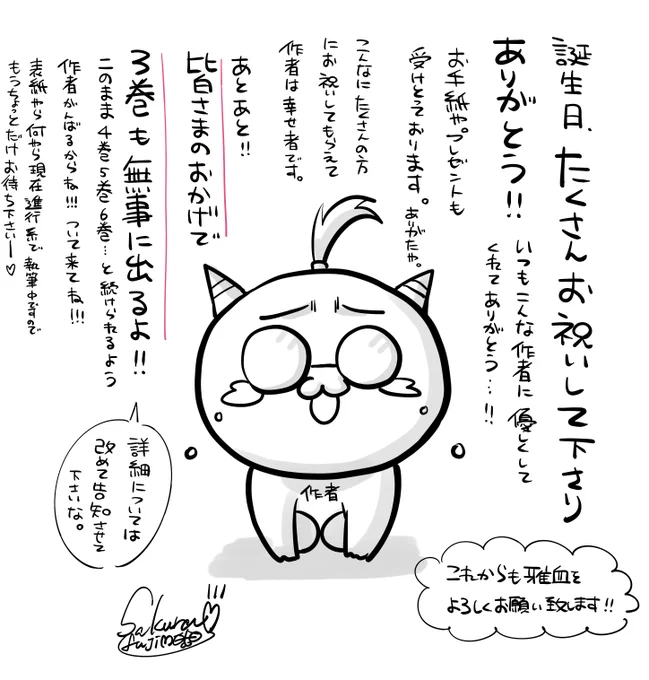 誕生日、たくさんお祝いして下さり
ありがとう!!
いつもこんな作者に優しくして
くれてありがとう…!!
お手紙やプレゼントも
受けとっております。ありがたや。
こんなにたくさんの方
にお祝いしてもらえて
作者は幸せ者です。
あとあと!!
皆さまのおかげで
3巻も無事に出るよ!!
このまま4巻5巻6巻…と続けられるよう
作者がんばるからね!!!ついて来てね!!!
表紙やら何やら現在進行系で執筆中ですので
もうちょっとだけお待ち下さいー♡
詳細については
改めて告知させて
下さいな。
作者
これからも雅血を
よろしくお願い致します!!
Sakurao